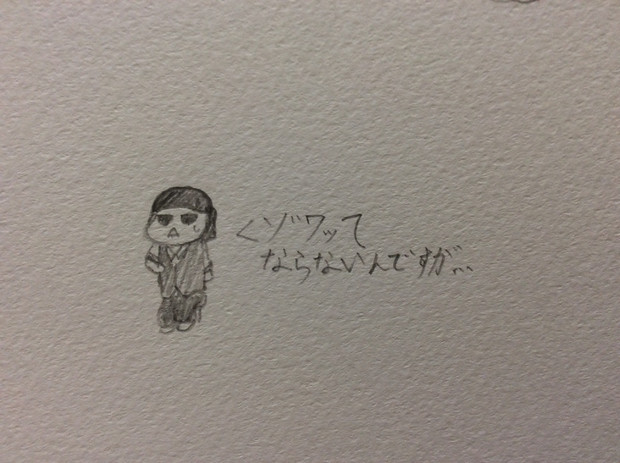 <ゾワッて
ならないんですが…